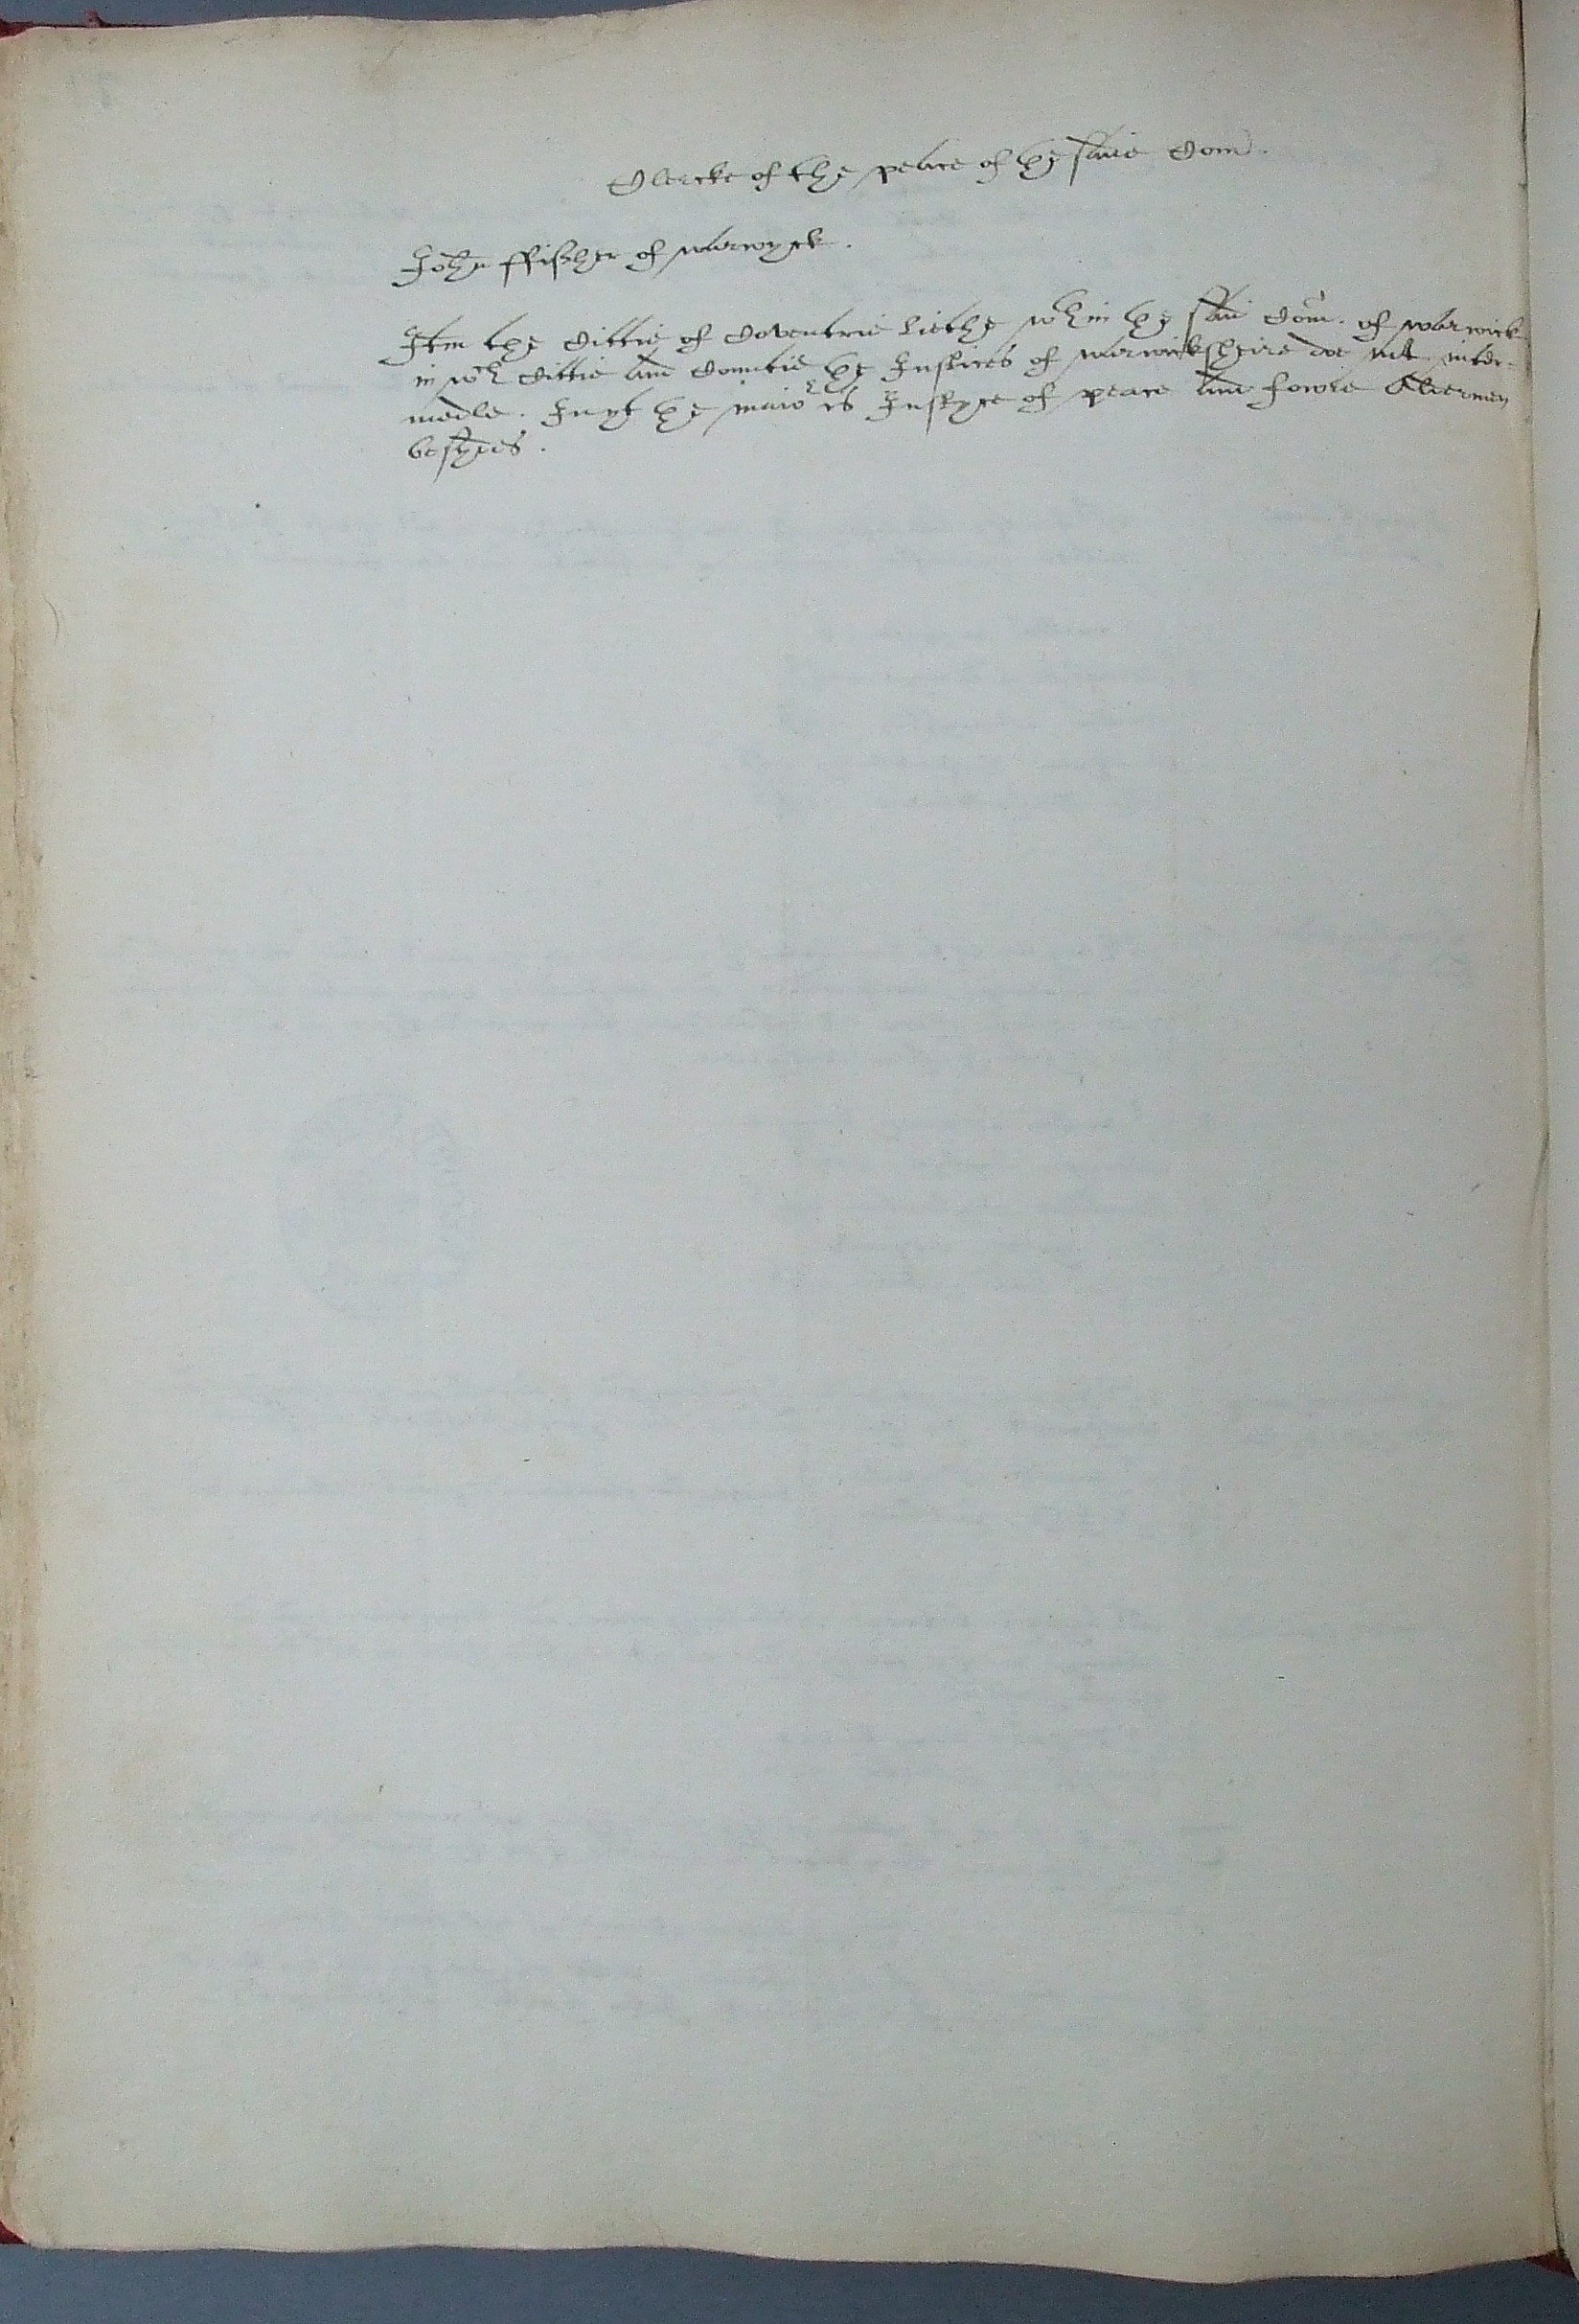 Clercke of the peace of the saide Com.
John ffissher of warwyck.
Itm the Cittie of Coventrie liethe wthin the said Com. of warwick
in wch Cittie and Countie the Justices of warwicksheire doe not inter-
medle. In yt the maior is Justyce of peace and fowre Aldermen
besydes.